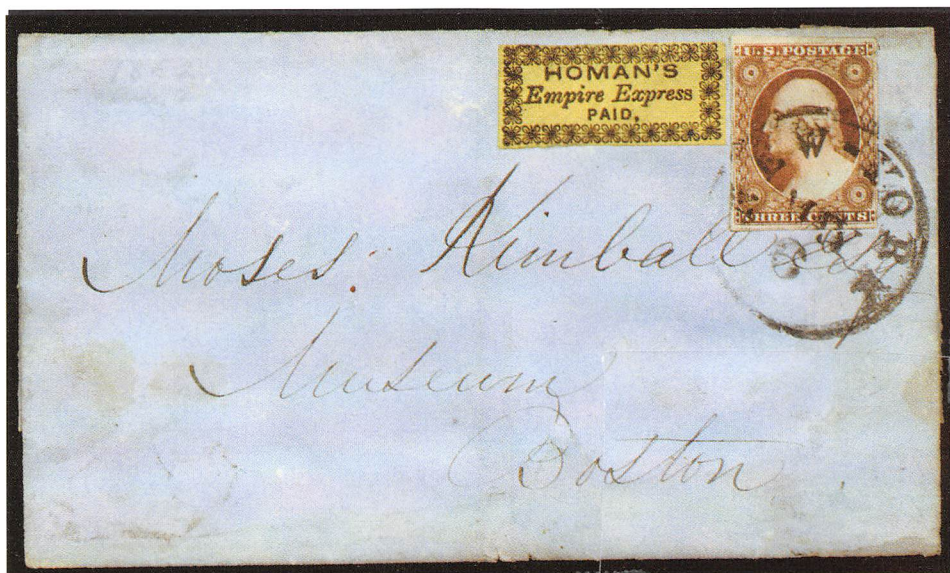 HOMAN'S
Empire Express
PAID.
U.S. POSTAGE
THREE CENTS
YORK
Moses Kimball Esq
Museum
Boston